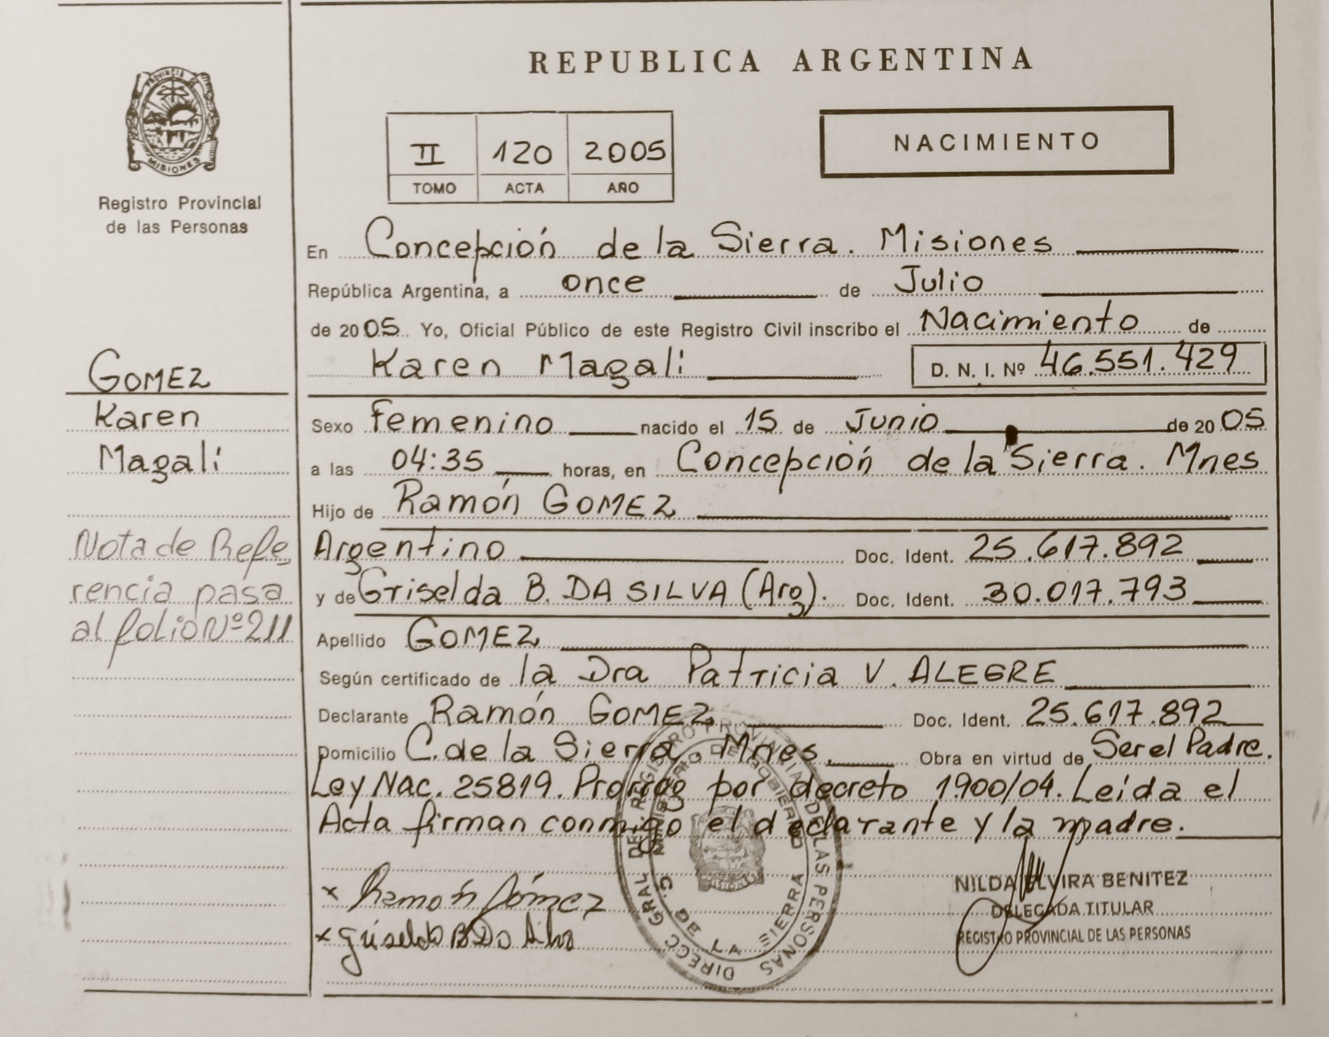 REPUBLICA ARGENTINA
PROVINCIA DE
MISIONES
Registro Provincial
de las Personas
II 120 2005
TOMO ACTA AÑO
NACIMIENTO
En Concepción de la Sierra. Misiones
República Argentina, a once de Julio
de 2005 Yo, Oficial Público de este Registro Civil inscribo el Nacimiento de
Karen Magalí D. N. I. Nº 46.551.429
Sexo Femenino nacido el 15 de Junio de 2005
a las 04:35 horas, en Concepción de la Sierra. Mnes
Hijo de Ramón GOMEZ
Argentino Doc. Ident. 25.617.892
y de Griselda B. DA SILVA (Arg). Doc. Ident. 30.017.793
Apellido GOMEZ
Según certificado de la Dra Patricia V. ALEGRE
Declarante Ramón GOMEZ Doc. Ident. 25.617.892
Domicilio C. de la Sierra, Mnes. Obra en virtud de Ser el Padre.
Ley Nac. 25819. Prorrog por decreto 1900/04. Leída el
Acta firman conmigo el declarante y la madre.
GOMEZ
Karen
Magalí
Nota de Refe
rencia pasa
al folio Nº 211
x Ramón Gómez
x Griselda B Da Silva
DIRECC GRAL DEL REGISTRO PROVINCIAL DE LAS PERSONAS
MINISTERIO DE GOBIERNO
C. DE LA SIERRA
NILDA ELVIRA BENITEZ
DELEGADA TITULAR
REGISTRO PROVINCIAL DE LAS PERSONAS